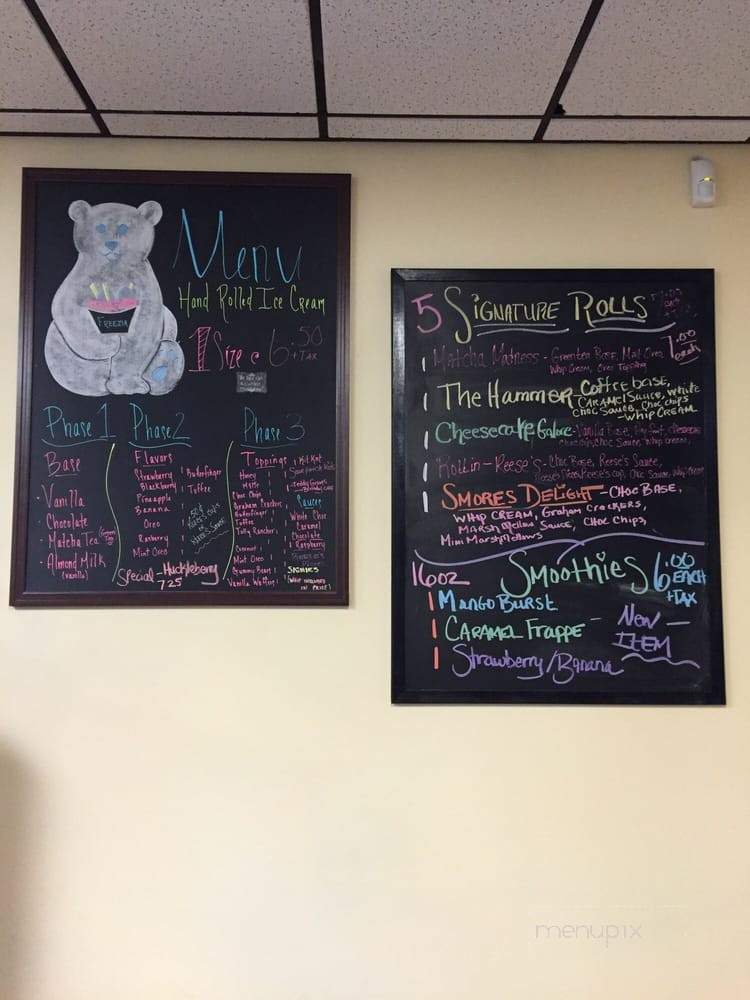 Menu
Hand Rolled Ice Cream
FREEZIA
1 Size 6.50
+TAX
Phase 1
Base
Vanilla
Chocolate
Matcha Tea
Almond Milk
(Vanilla)
Phase 2
Flavors
Strawberry
Blackberry
Pineapple
Banana
Oreo
Rasberry
Mint Oreo
Butterfinger
Toffee
Special - Huckleberry
7.25
Phase 3
Toppings
Honey
Choc Chips
Graham Crackers
Butterfinger
Toffee
Jolly Ranchers
Coconut
Mint Oreo
Gummy Bears
Vanilla Waffers
Kit Kat
Sour patch Kids
Teddy Grahams
Sauces
White Choc
Caramel
Chocolate
Raspberry
(Whip included
in price)
5 Signature Rolls
7.00
each
Matcha Madness - Greentea Base, Mint Oreo
Whip Cream, Oreo Topping
The Hammer Coffee base,
CARAMEL Sauce, white
Choc Sauce, Choc chips
- WHIP CREAM
Cheesecake Galore - Vanilla Base,
Choc Sauce, Whip Cream,
Rollin-Reese's - Choc Base, Reese's Sauce,
Choc Sauce, Whip Cream
SMORES DELIGHT - CHOC BASE,
WHIP CREAM, Graham Crackers,
Marshmellow Sauce, Choc Chips,
Mini Marshmellows
16oz Smoothies 6.00
EACH
+TAX
Mango Burst
Caramel Frappe - New -
ITEM
Strawberry/Banana
menupix